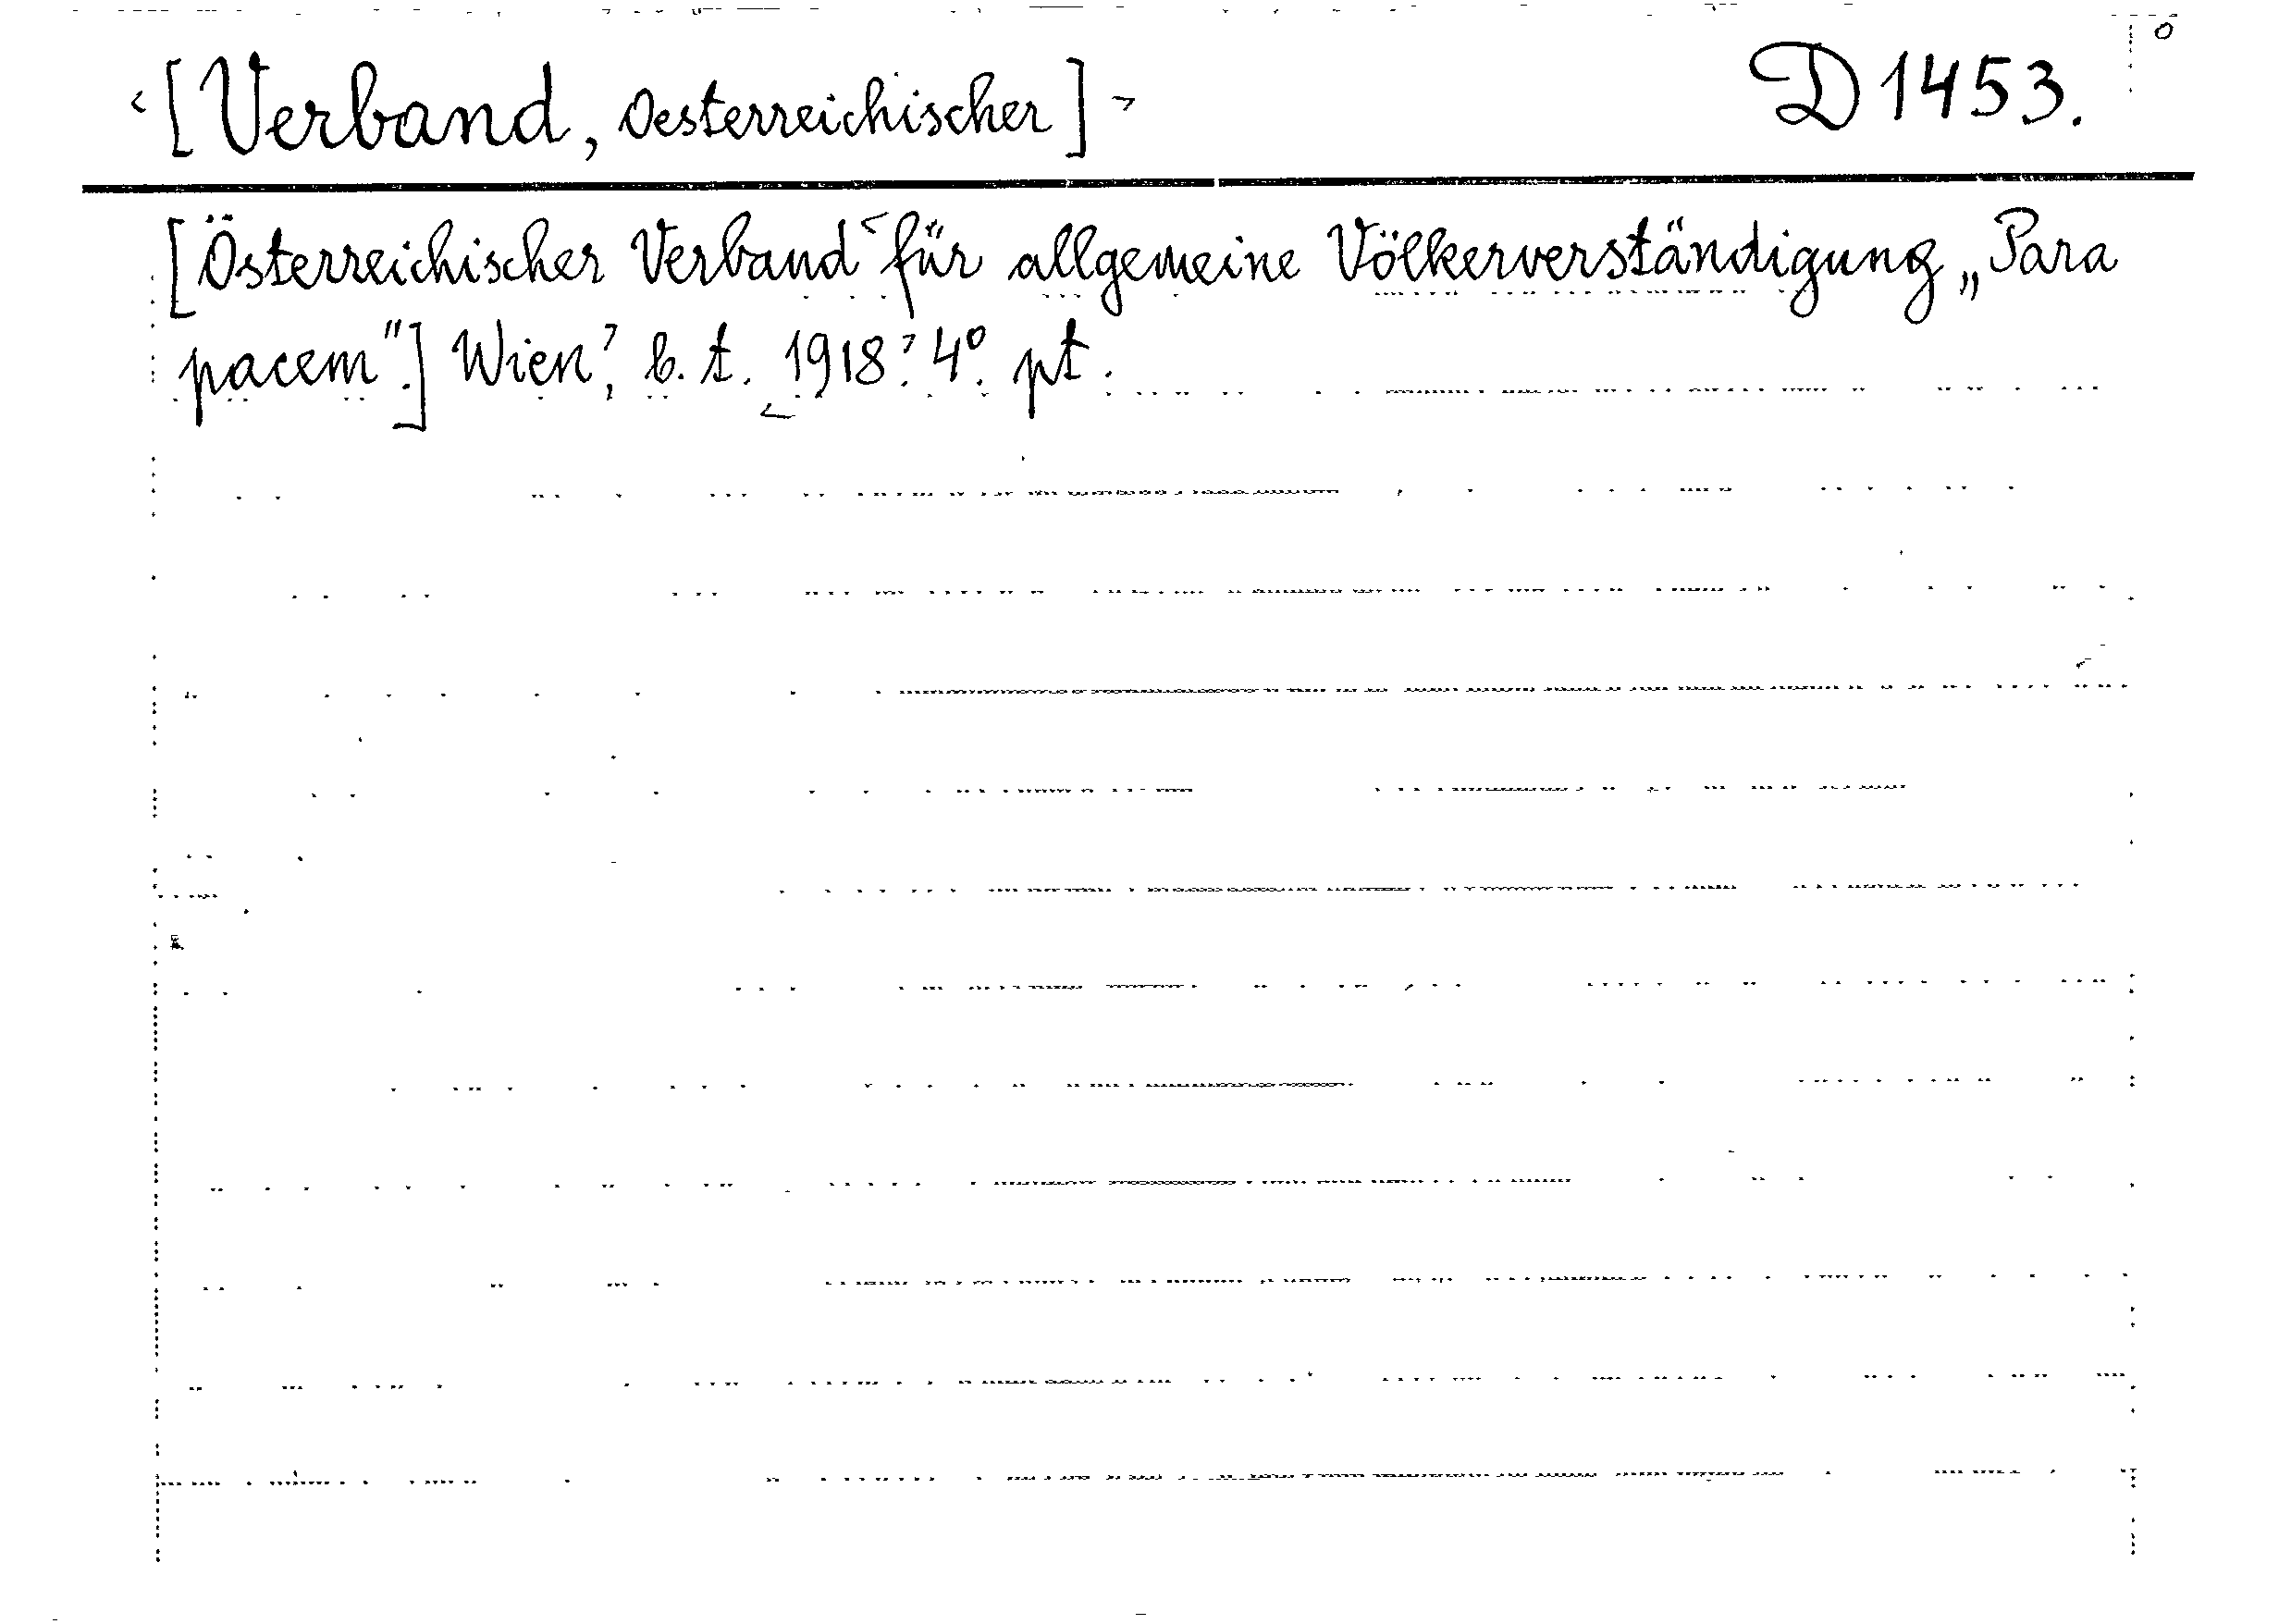 <[Verband, Oesterreichischer]> D 1453.
[Österreichischer Verband< für allgemeine Völkerverständigung „Para
pacem".] Wien?, b. t. <1918?. 4°. pt.